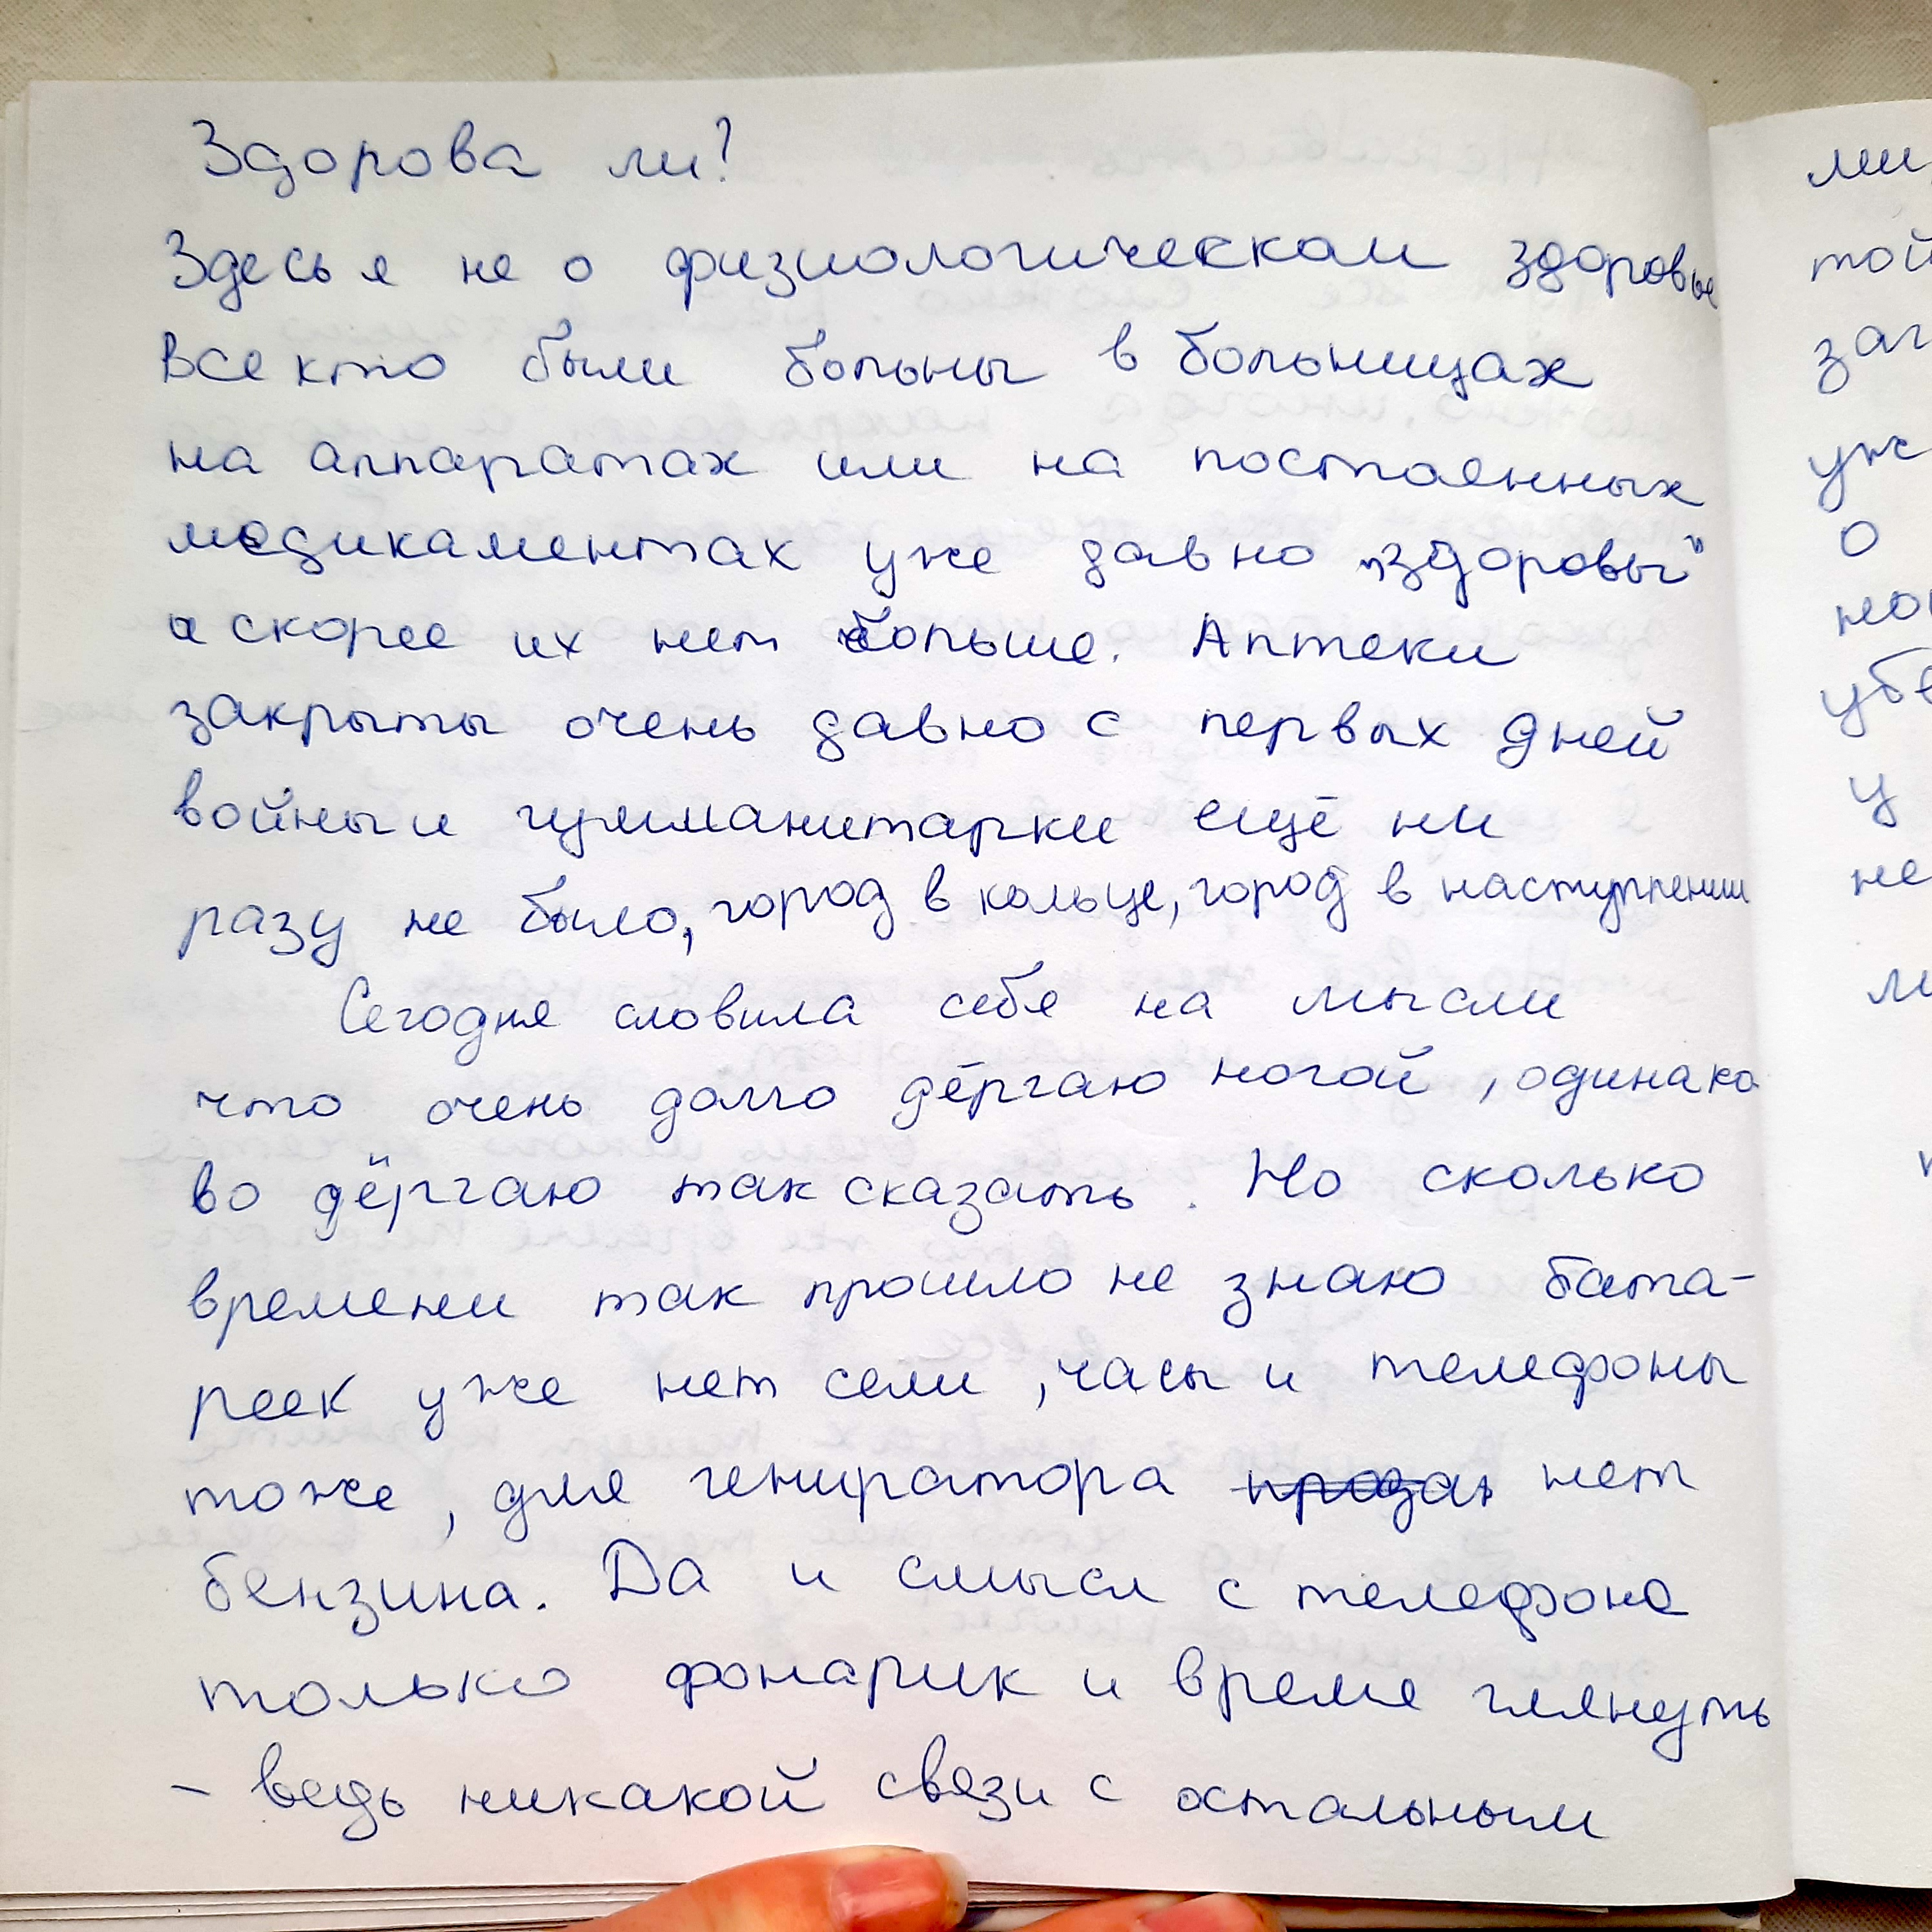 Здорова ли?
Здесь я не о физиологическом здоровье
все кто были больны в больницах
на аппаратах или на постоянных
медикаментах уже давно „здоровы"
а скорее их нет больше. Аптеки
закрыты очень давно с первых дней
войны и гумманитарки ещё ни
разу не было, город в кольце, город в наступлении
Сегодня словила себя на мысли
что очень долго дёргаю ногой, одинако
во дёргаю так сказать. Но сколько
времени так прошло не знаю бата-
реек уже нет сели, часы и телефоны
тоже, для гениратора нет
бензина. Да и смысл с телефона
только фонарик и время глянуть
- ведь никакой связи с остальным
ми
той
заг
уж
о
убе
у
не